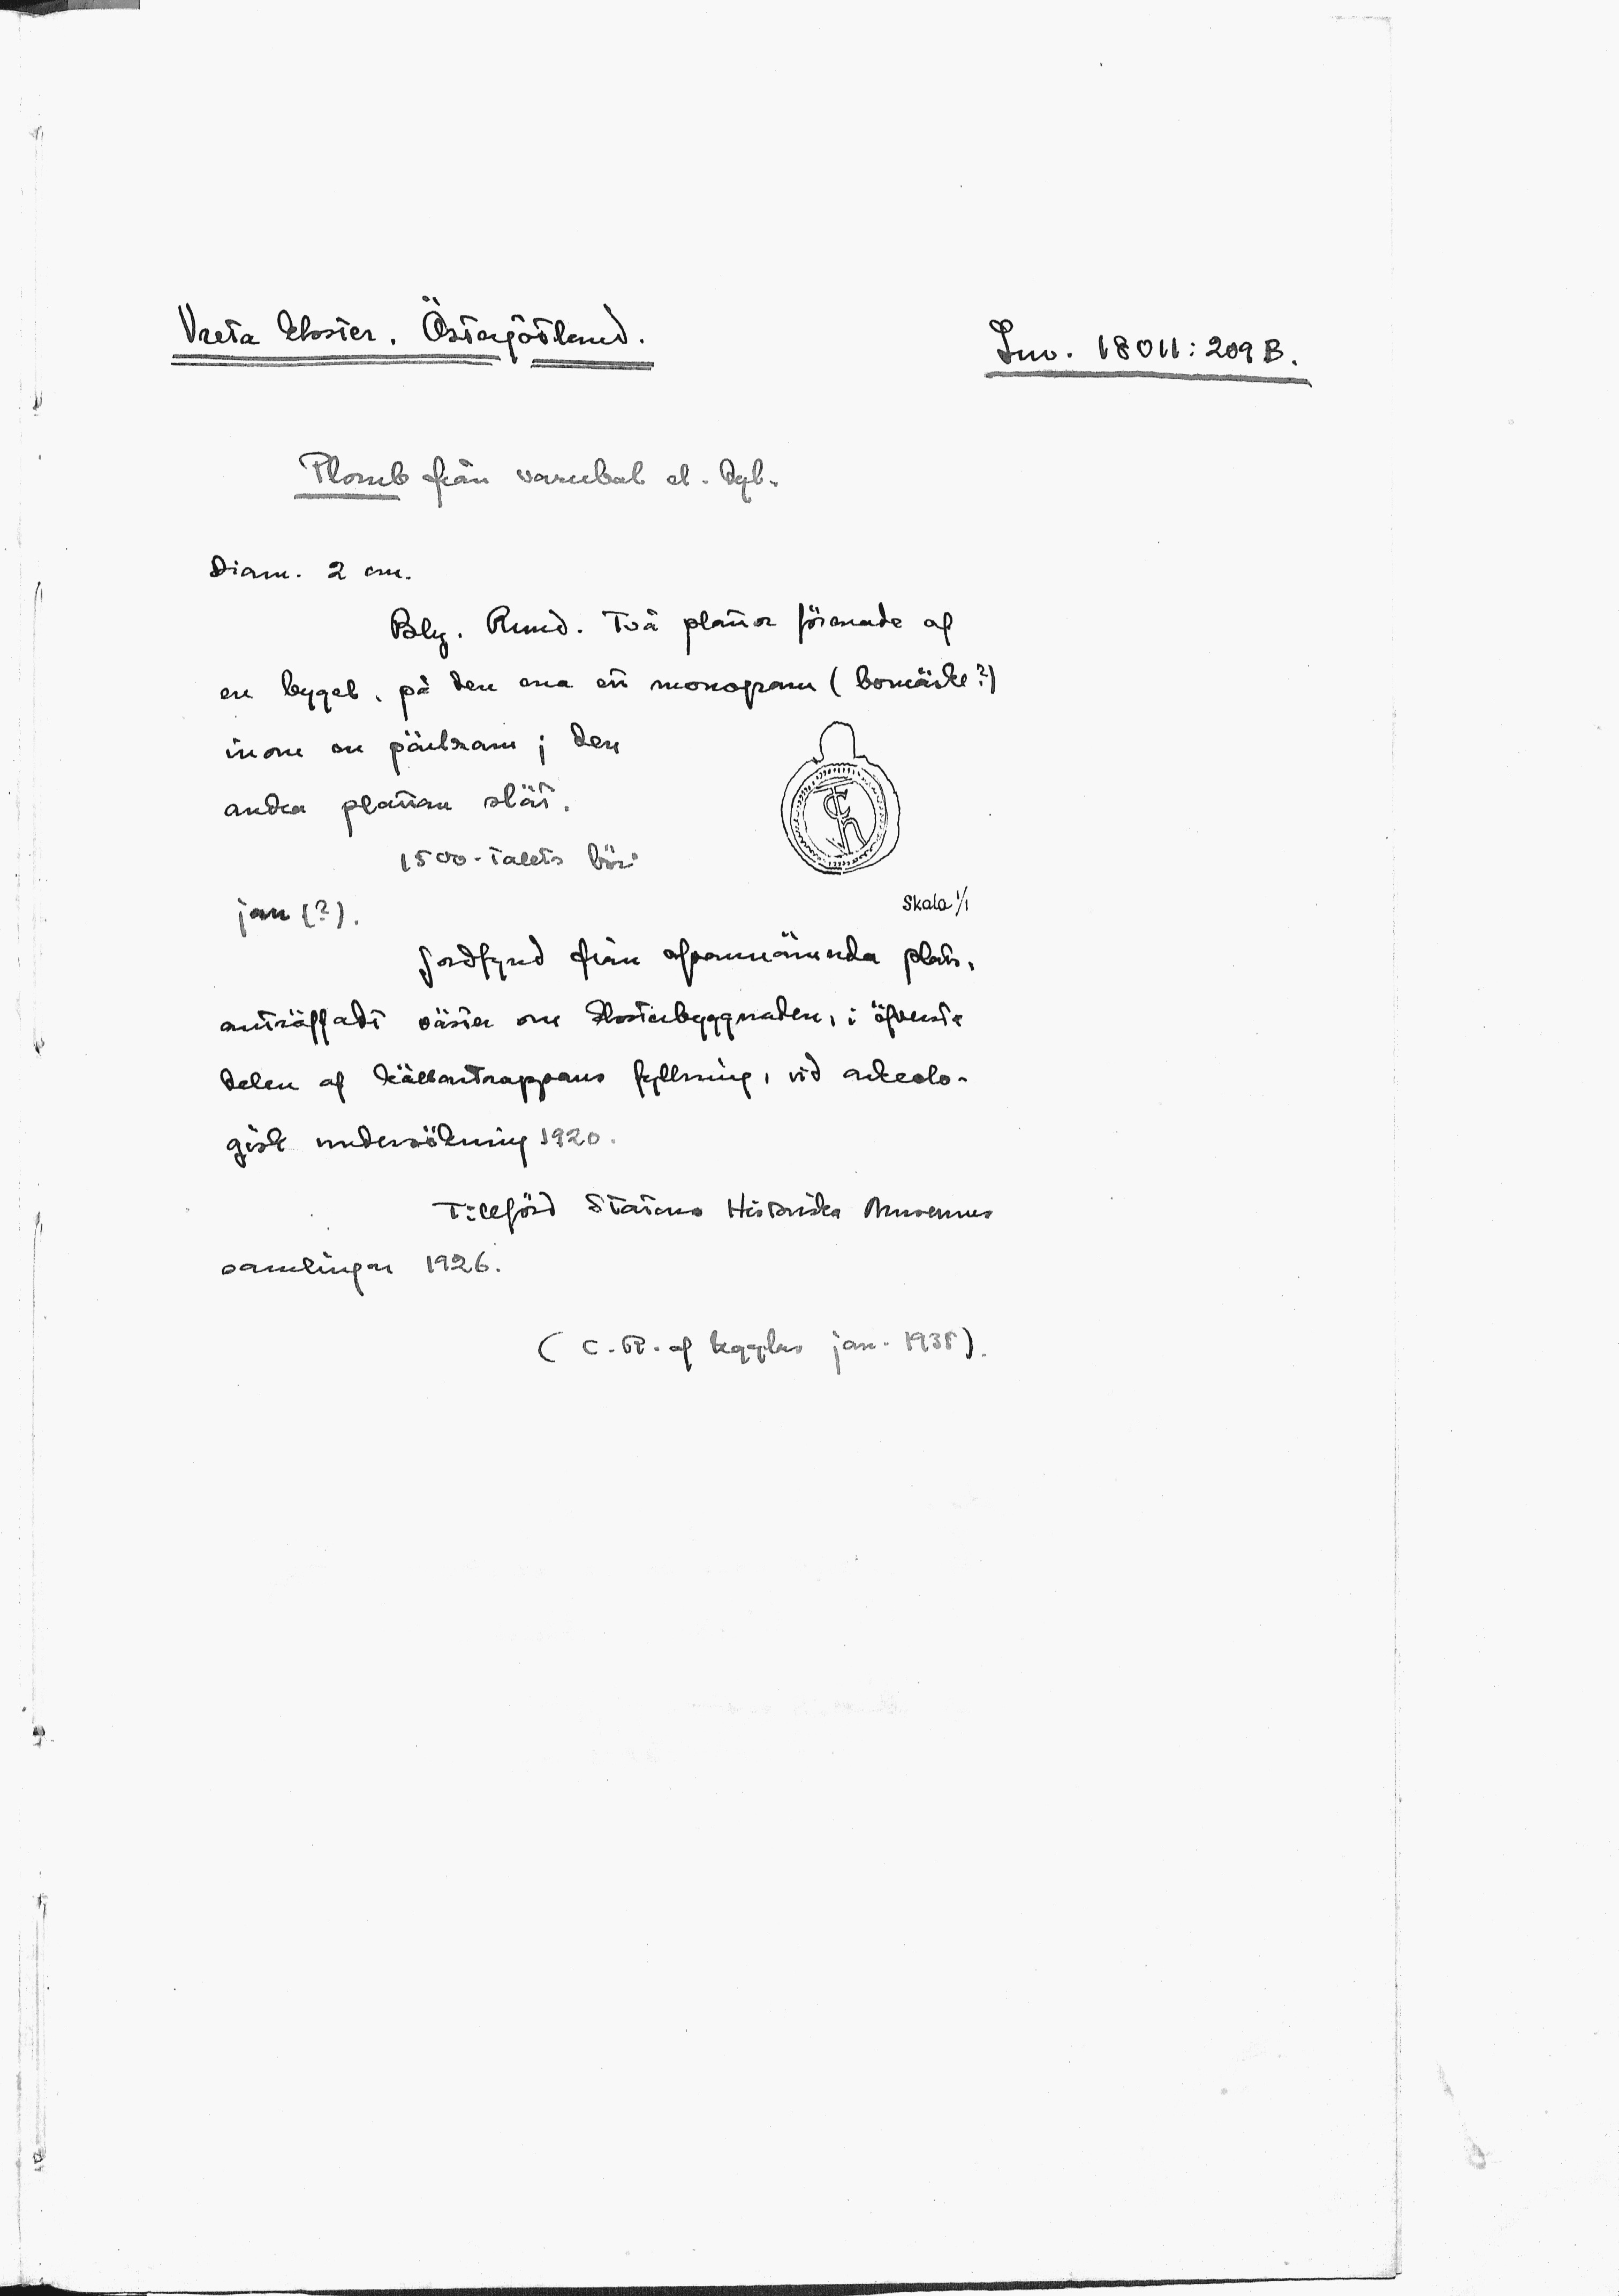 Vreta kloster. Östergötland.
Inv. 18011:209B.
Plomb från varubal el. dyl.
Diam. 2 cm.
Bly. Rund. Två plattor förenade af
en bygel, på den ena ett monogram (bomärke?)
inom en pärlram; den
andra plattan slät.
1500-talets bör-
jan (?).
Skala 1/1
Jordfynd från ofvannämnda plats,
anträffadt väster om klosterbyggnaden, i öfversta
delen af källartrappans fyllning, vid arkeolo-
gisk undersökning 1920.
Tillförd Statens Historiska Museums
samlingar 1926.
(C. R. af Ugglas jan. 1935).